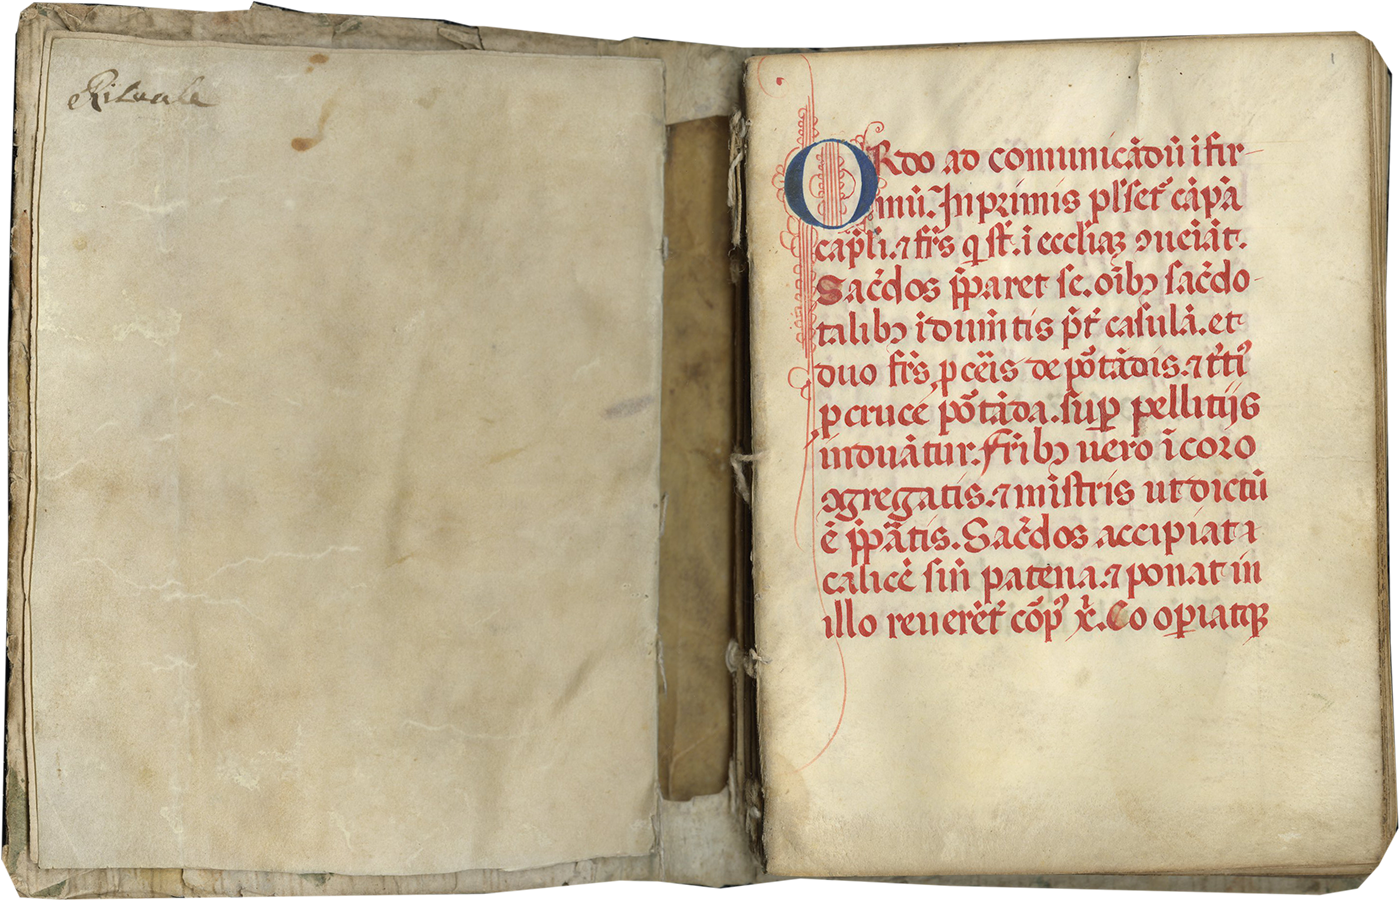 Rituale
1
ORdo ad comunicãdũ ĩfir-
mũ. Inprimis pl'set᷑ cãpã
cap̃li. ⁊ fr̃s q̃ st̃. ĩ eccl'iaꝫ ꝯueiãt.
Sac̃dos p̃paret se. oĩbꝫ sac̃do-
talibꝫ ĩduim̃tis p̃t᷑ casulã. et
duo fr̃s ꝓ cẽis de põtãdis. ⁊ t̃tiꝰ
ꝓ cruce põtãda. suꝑ pellitijs
induãtur. fr̃ibꝫ uero ĩ coro
ꝯgregatis. ⁊ mĩstris ut dictũ
ẽ p̃pãtis. Sac̃dos accipiat
calicẽ sin̄ patena. ⁊ ponat in
illo reuerẽt᷑ cõpꝰ xĩ. Co oꝑiatqꝫ